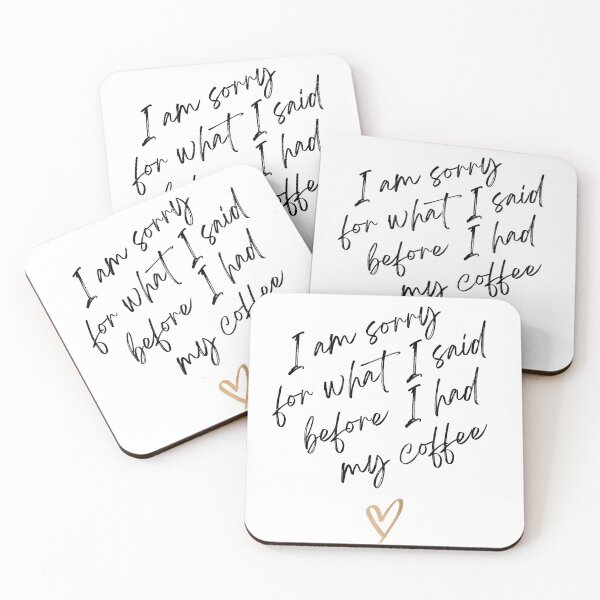 I am sorry
for what I said
before I had
coffee
I am sorry
for what I said
before I had
my coffee
I am sorry
for what I said
before I had
my coffee
I am sorry
for what I said
before I had
my coffee